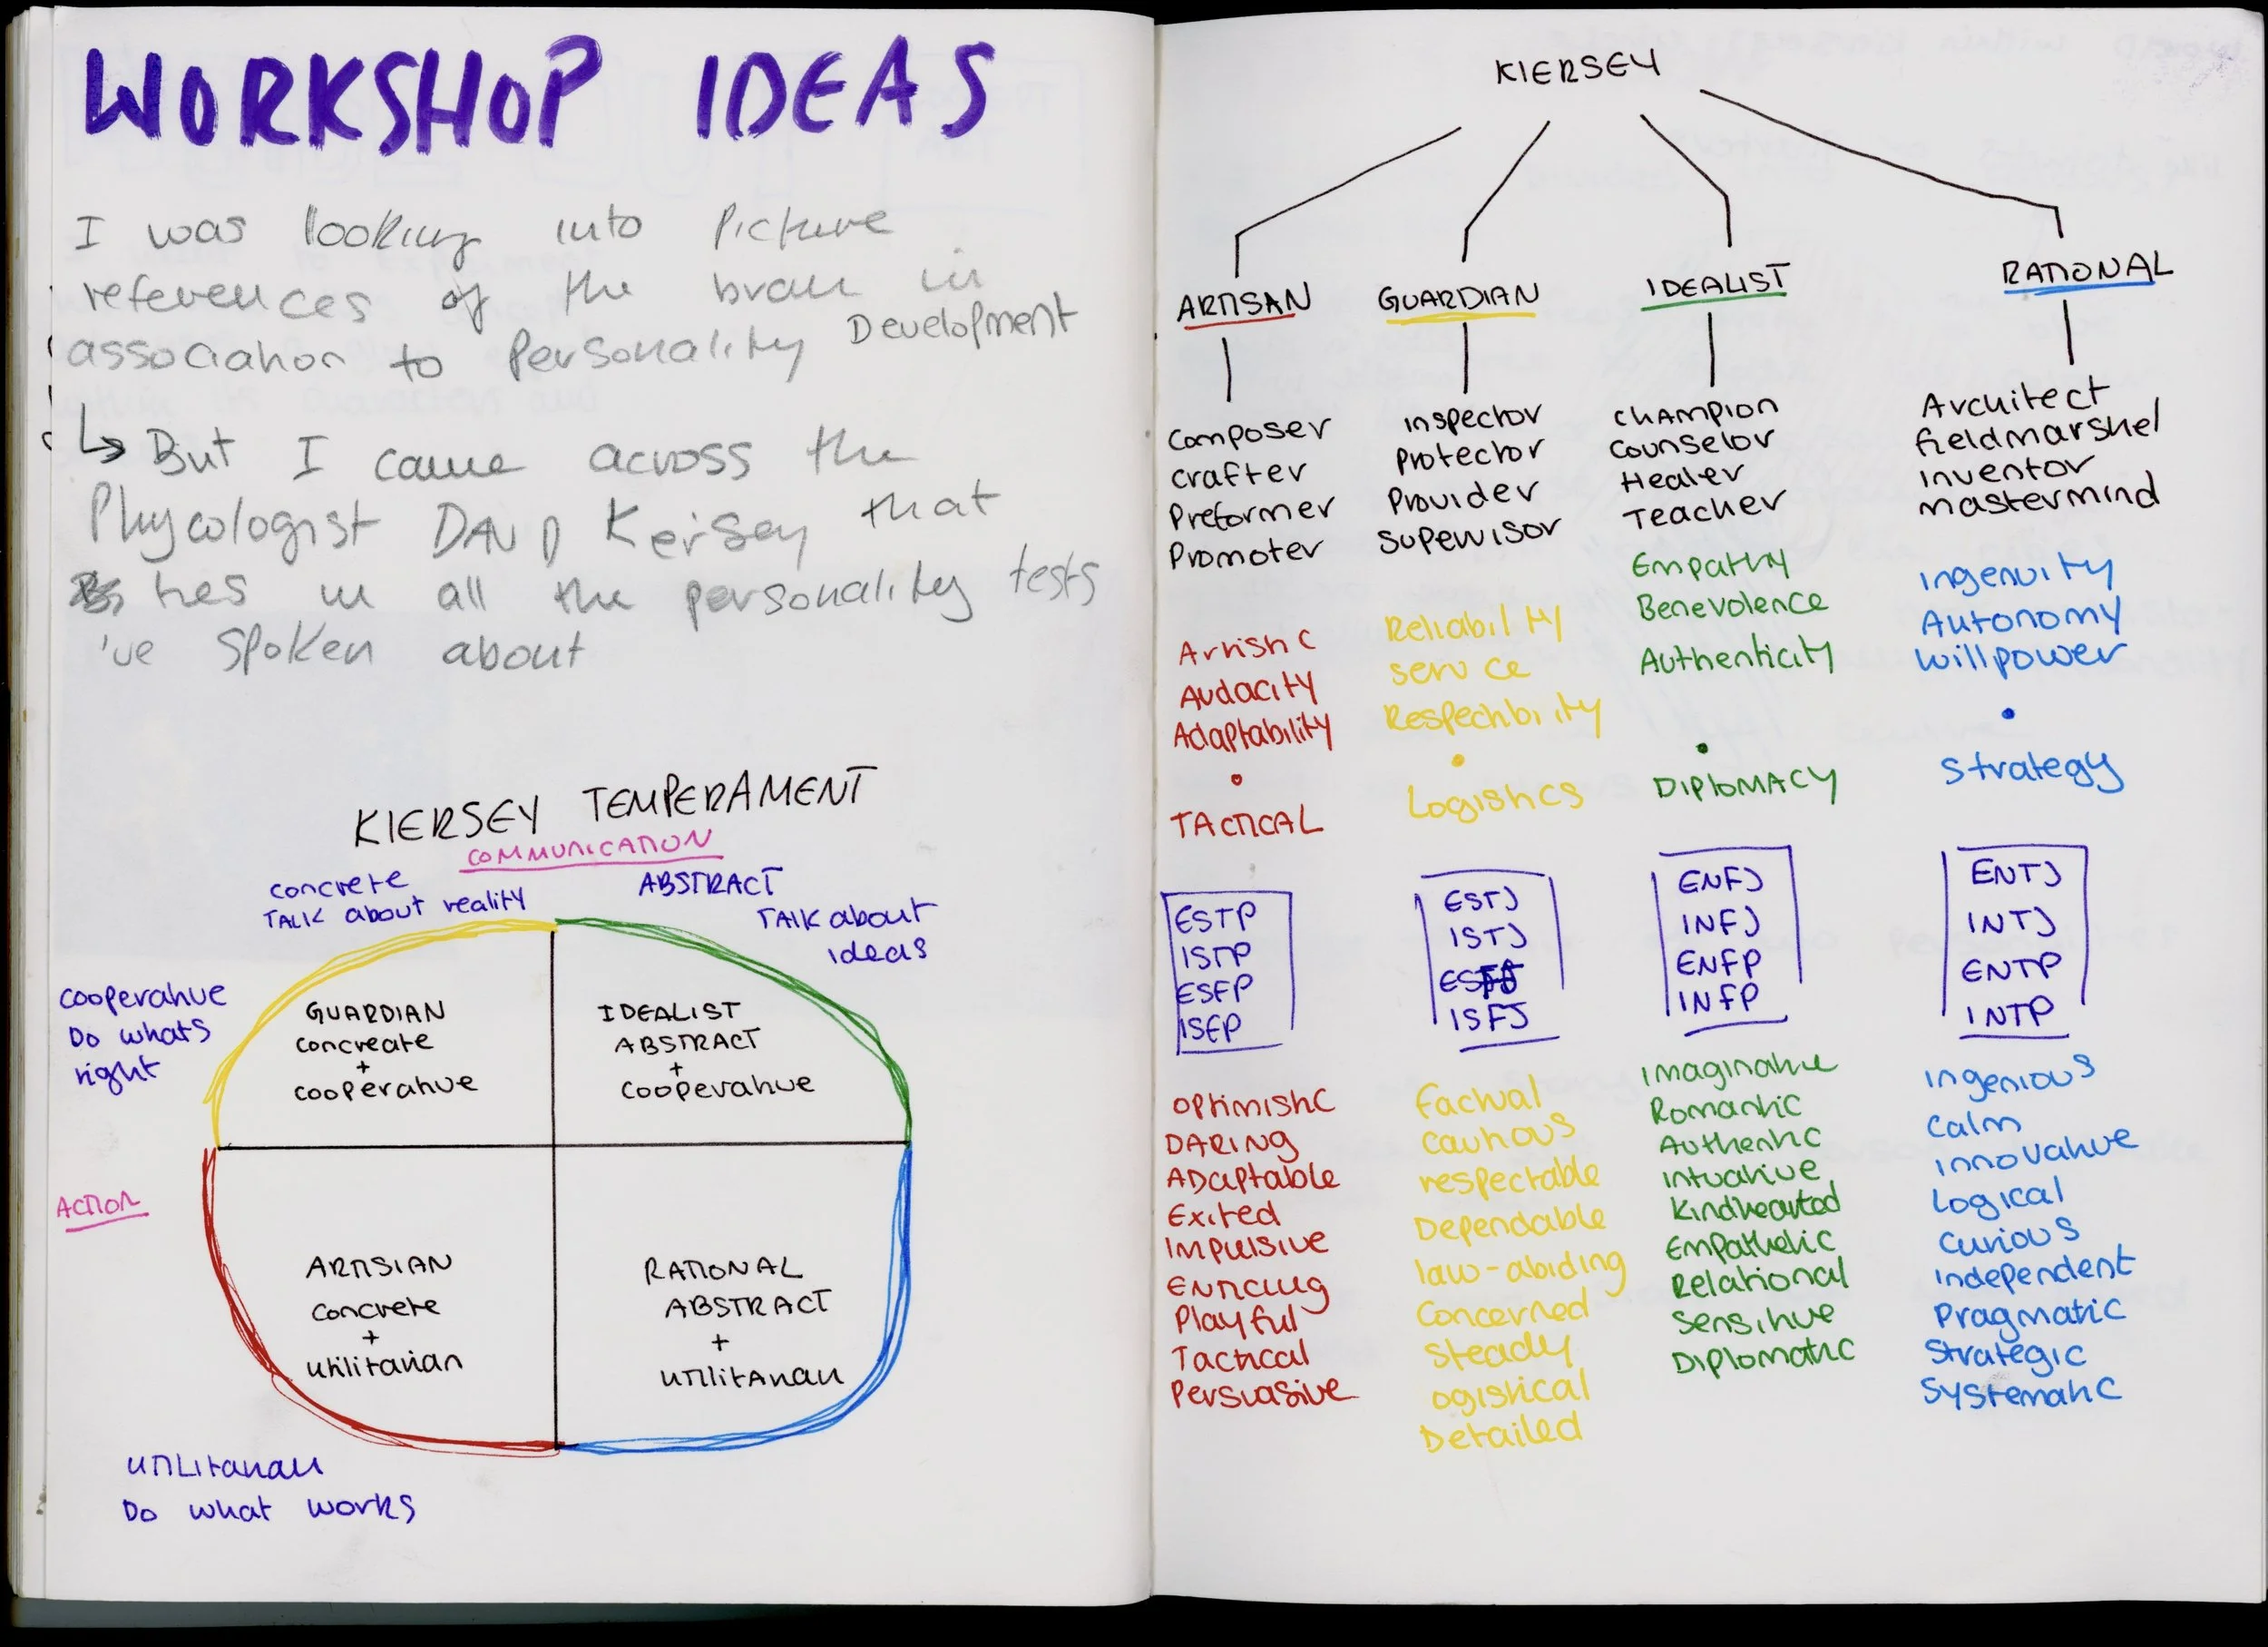 WORKSHOP IDEAS
I was looking into Picture
references of the brain in
association to Personality Development
↳ But I came across the
Phycologist DAVID Keirsey that
ties in all the personality tests
've spoken about
KIERSEY TEMPERAMENT
COMMUNICATION
concrete
TALK about reality
ABSTRACT
TALK about
ideas
cooperative
Do whats
right
GUARDIAN
concreate
+
cooperative
IDEALIST
ABSTRACT
+
cooperative
ACTION
ARTISIAN
concrete
+
utilitarian
RATIONAL
ABSTRACT
+
UTILITARIAN
UTILITARIAN
Do what works
KIERSEY
ARTISAN
composer
crafter
Preformer
Promoter
Artistic
Audacity
Adaptability
•
TACTICAL
ESTP
ISTP
ESFP
ISFP
optimistic
DARING
ADaptable
Exited
Impulsive
ENTICING
Playful
Tactical
Persuasive
GUARDIAN
inspector
Protector
Provider
supervisor
Reliability
service
Respectibility
•
Logistics
ESTJ
ISTJ
ESFJ
ISFJ
factual
cautious
respectable
Dependable
law-abiding
Concerned
Steady
ogistical
Detailed
IDEALIST
champion
counselor
Healer
Teacher
Empathy
Benevolence
Authenticity
•
DIPLOMACY
ENFJ
INFJ
ENFP
INFP
imaginative
Romantic
Authentic
intuative
Kindhearted
Empathetic
Relational
Sensitive
Diplomatic
RATIONAL
Architect
fieldmarshel
inventor
mastermind
ingenuity
Autonomy
willpower
•
Strategy
ENTJ
INTJ
ENTP
INTP
ingenious
calm
innovative
Logical
curious
independent
Pragmatic
Strategic
Systematic